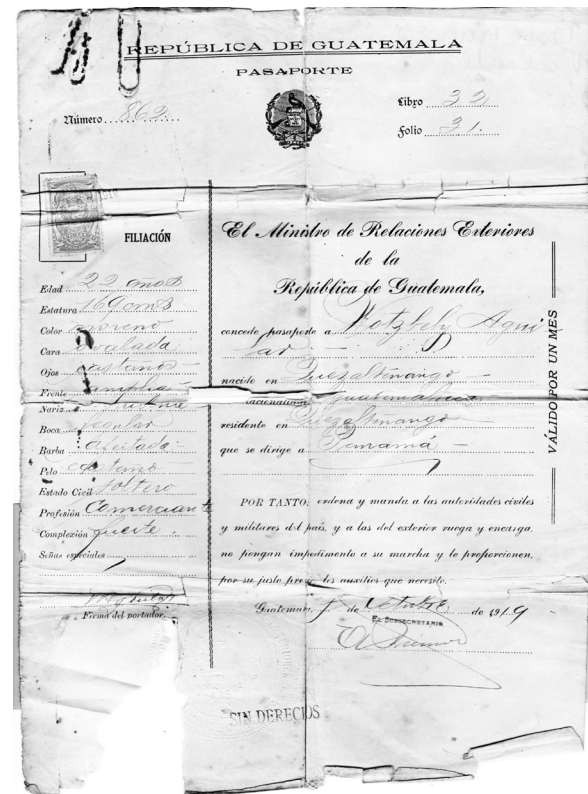 REPÚBLICA DE GUATEMALA
PASAPORTE
Número 862
Libro 32
Folio 31.
FILIACIÓN
Edad 22 años
Estatura 169 cms
Color moreno
Cara ovalada
Ojos castaños
Frente amplia
Nariz
Boca regular
Barba afeitada
Pelo castaño
Estado Civil soltero
Profesión Comerciante
Complexión fuerte
Señas especiales
Firma del portador.
El Ministro de Relaciones Exteriores
de la
República de Guatemala,
concede pasaporte a Votzbely Agui
lar
nacido en Quezaltenango
nacionalidad guatemalteca
residente en Quezaltenango
que se dirige a Panamá
POR TANTO: ordena y manda a las autoridades civiles
y militares del país, y a las del exterior ruega y encarga,
no pongan impedimento a su marcha y le proporcionen,
por su justo los auxilios que necesite.
Guatemala, de Octubre de 1919
EL SUBSECRETARIO
SIN DERECIOS
VÁLIDO POR UN MES